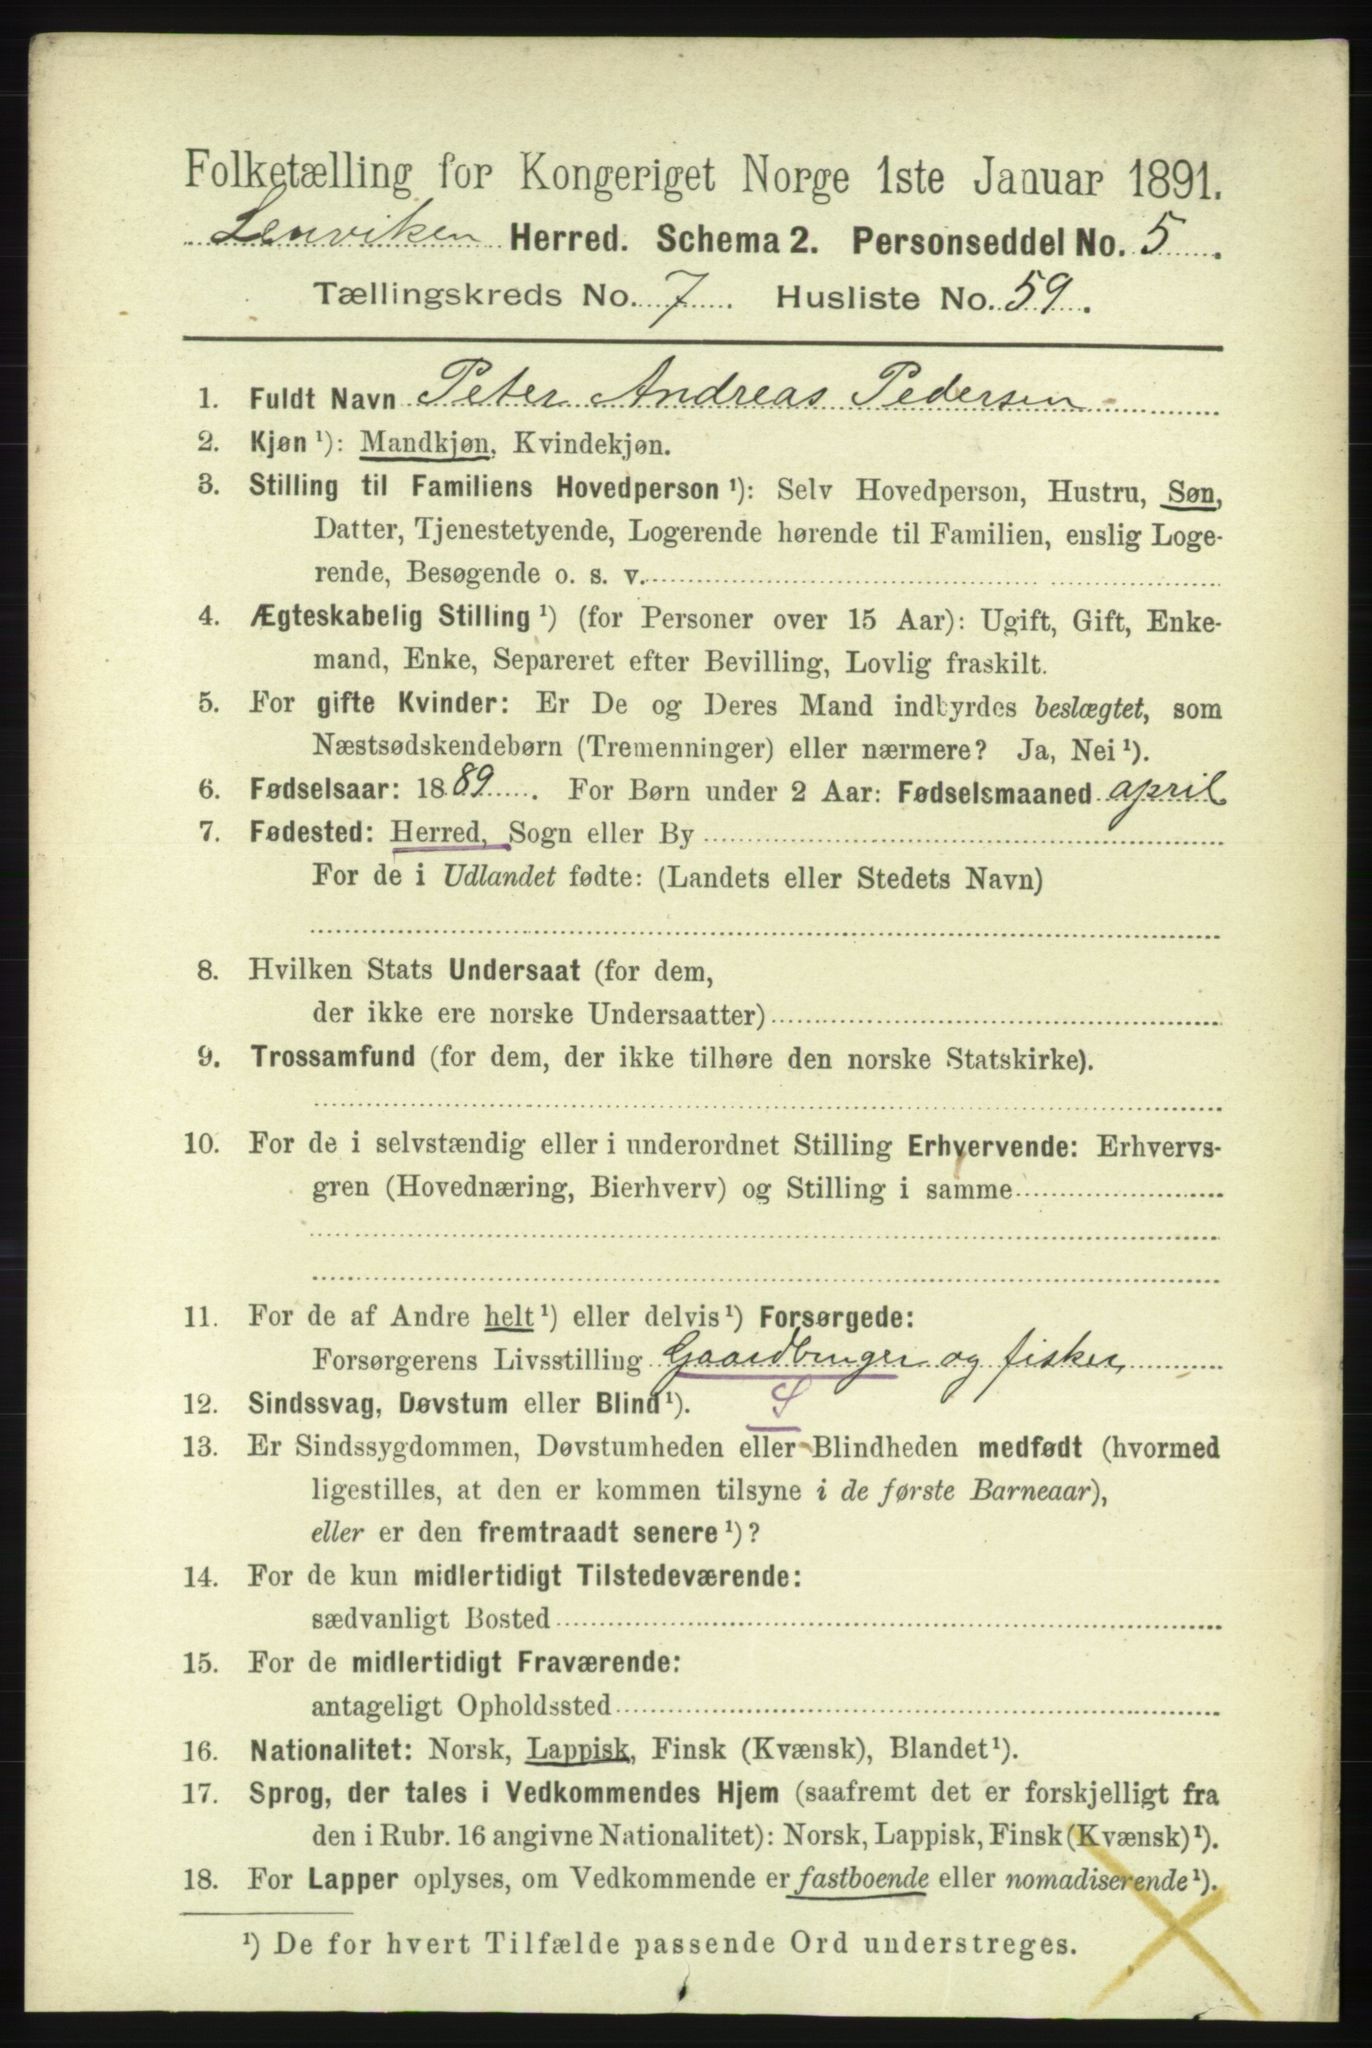 Folketælling for Kongeriget Norge 1ste Januar 1891.
Lenviken Herred. Schema 2. Personseddel No. 5.
Tællingskreds No. 7. Husliste No. 59.
1. Fuldt Navn Peter Andreas Pedersen
2. Kjøn ¹): Mandkjøn, Kvindekjøn.
3. Stilling til Familiens Hovedperson ¹): Selv Hovedperson, Hustru, Søn,
Datter, Tjenestetyende, Logerende hørende til Familien, enslig Loge-
rende, Besøgende o. s. v.
4. Ægteskabelig Stilling ¹) (for Personer over 15 Aar): Ugift, Gift, Enke-
mand, Enke, Separeret efter Bevilling, Lovlig fraskilt.
5. For gifte Kvinder: Er De og Deres Mand indbyrdes beslægtet, som
Næstsødskendebørn (Tremenninger) eller nærmere? Ja, Nei ¹).
6. Fødselsaar: 1889. For Børn under 2 Aar: Fødselsmaaned april
7. Fødested: Herred, Sogn eller By
For de i Udlandet fødte: (Landets eller Stedets Navn)
8. Hvilken Stats Undersaat (for dem,
der ikke ere norske Undersaatter)
9. Trossamfund (for dem, der ikke tilhøre den norske Statskirke).
10. For de i selvstændig eller i underordnet Stilling Erhvervende: Erhvervs-
gren (Hovednæring, Bierhverv) og Stilling i samme
11. For de af Andre helt ¹) eller delvis ¹) Forsørgede:
Forsørgerens Livsstilling Gaardbruger og fisker
12. Sindssvag, Døvstum eller Blind ¹). S
13. Er Sindssygdommen, Døvstumheden eller Blindheden medfødt (hvormed
ligestilles, at den er kommen tilsyne i de første Barneaar),
eller er den fremtraadt senere ¹)?
14. For de kun midlertidigt Tilstedeværende:
sædvanligt Bosted
15. For de midlertidigt Fraværende:
antageligt Opholdssted
16. Nationalitet: Norsk, Lappisk, Finsk (Kvænsk), Blandet ¹).
17. Sprog, der tales i Vedkommendes Hjem (saafremt det er forskjelligt fra
den i Rubr. 16 angivne Nationalitet): Norsk, Lappisk, Finsk (Kvænsk) ¹).
18. For Lapper oplyses, om Vedkommende er fastboende eller nomadiserende ¹).
¹) De for hvert Tilfælde passende Ord understreges.